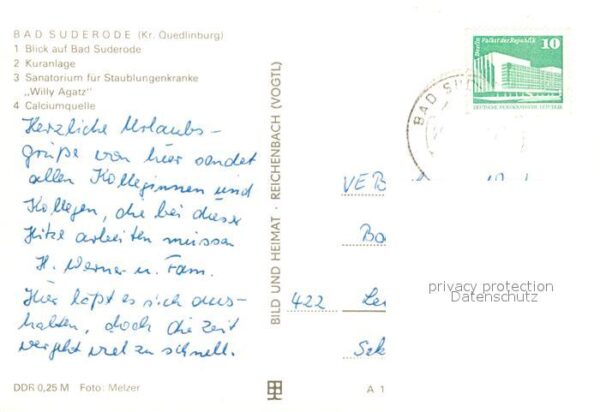 BAD SUDERODE (Kr. Quedlinburg)
1 Blick auf Bad Suderode
2 Kuranlage
3 Sanatorium für Staublungenkranke
„Willy Agatz"
4 Calciumquelle
Herzliche Urlaubs-
grüße von hier sendet
allen Kolleginnen und
Kollegen, die bei dieser
Hitze arbeiten müssen
H. Werner u. Fam.
Hier läßt es sich aus-
halten, doch die Zeit
vergeht viel zu schnell.
DDR 0,25 M Foto: Melzer
BILD UND HEIMAT · REICHENBACH (VOGTL)
Berlin, Palast der Republik
10
DEUTSCHE DEMOKRATISCHE REPUBLIK
BAD SUDE
VEB
Ba
422 Le
Sek
A 1
privacy protection
Datenschutz